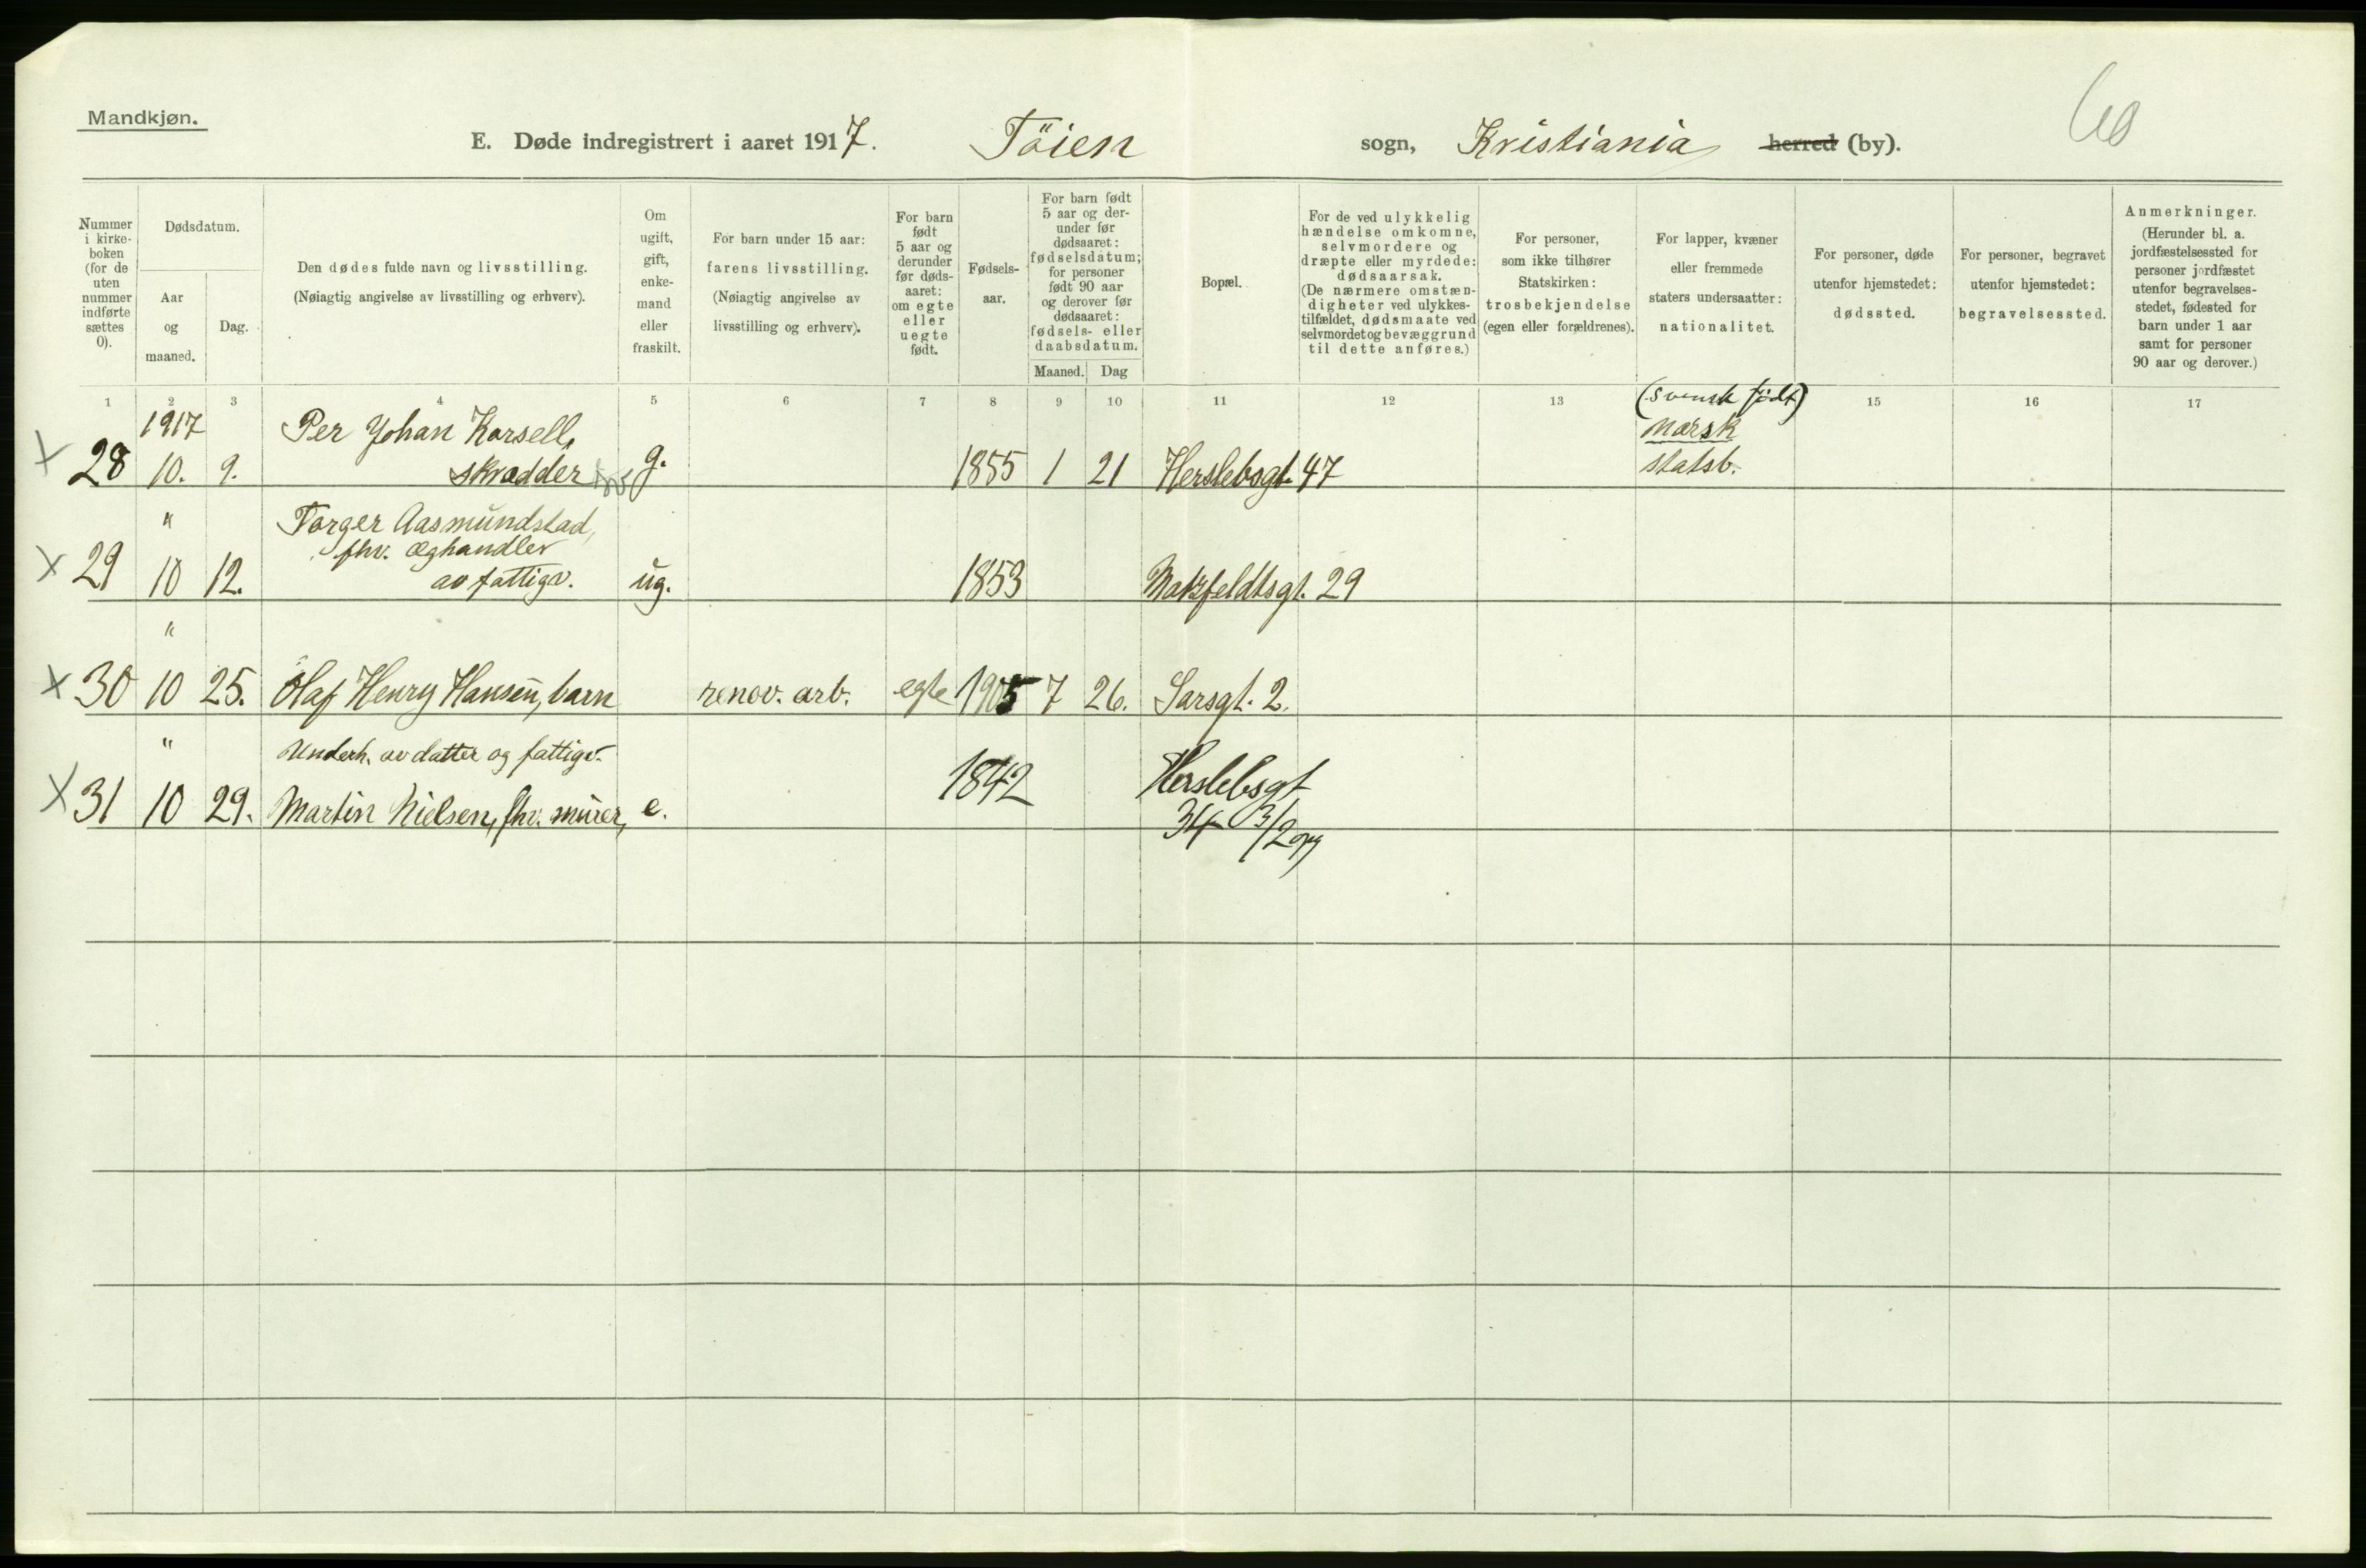 Mandkjøn.
E. Døde indregistrert i aaret 1917. Töien sogn, Kristiania herred (by).
Nummer i kirke-boken (for de uten nummer indførte sættes 0).
Dødsdatum.
Aar og maaned.
Dag.
Den dødes fulde navn og livsstilling.
(Nøiagtig angivelse av livsstilling og erhverv).
Om ugift, gift, enke-mand eller fraskilt.
For barn under 15 aar: farens livsstilling. (Nøiagtig angivelse av livsstilling og erhverv).
For barn født 5 aar og derunder før døds-aaret: om egte eller uegte født.
Fødsels-aar.
For barn født 5 aar og der-under før dødsaaret: fødselsdatum; for personer født 90 aar og derover før dødsaaret: fødsels- eller daabsdatum.
Maaned. Dag
Bopæl.
For de ved ulykkelig hændelse omkomne, selvmordere og dræpte eller myrdede: dødsaarsak. (De nærmere omstæn-digheter ved ulykkes-tilfældet, dødsmaate ved selvmordet og bevæggrund til dette anføres.)
For personer, som ikke tilhører Statskirken: trosbekjendelse (egen eller forældrenes).
For lapper, kvæner eller fremmede staters undersaatter: nationalitet.
For personer, døde utenfor hjemstedet: dødssted.
For personer, begravet utenfor hjemstedet: begravelsessted.
Anmerkninger. (Herunder bl. a. jordfæstelsessted for personer jordfæstet utenfor begravelses-stedet, fødested for barn under 1 aar samt for personer 90 aar og derover.)
1 2 3 4 5 6 7 8 9 10 11 12 13 15 16 17
1917 Per Johan Korsell, (svensk født)
norsk
28 10. 9. skrædder g. 1855 1 21 Herslebsgt. 47 statsb.
" Torger Aasmundstad,
fhv. æghandler
29 10 12. av fattigv. ug. 1853 Motzfeldtsgt. 29
"
30 10 25. Olaf Henry Hansen, barn renov. arb. egte 1905 7 26. Sarsgt. 2.
" Underh. av datter og fattigv.
31 10 29. Martin Nielsen, fhv. murer, e. 1842 Herslebsgt
34 3/2